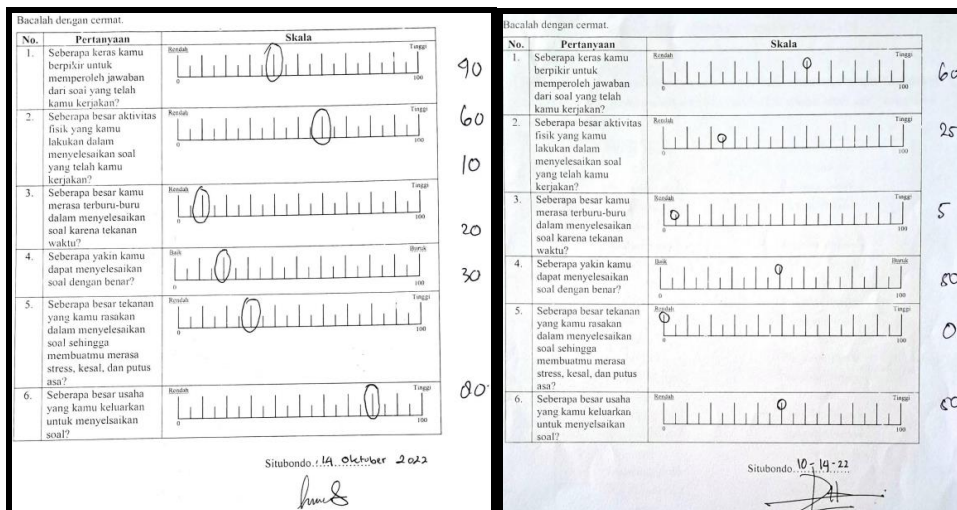 Bacalah dengan cermat.
No. Pertanyaan Skala
1. Seberapa keras kamu
berpikir untuk
memperoleh jawaban
dari soal yang telah
kamu kerjakan?
Rendah Tinggi
0 100
90
2. Seberapa besar aktivitas
fisik yang kamu
lakukan dalam
menyelesaikan soal
yang telah kamu
kerjakan?
Rendah Tinggi
0 100
60
10
3. Seberapa besar kamu
merasa terburu-buru
dalam menyelesaikan
soal karena tekanan
waktu?
Rendah Tinggi
0 100
20
4. Seberapa yakin kamu
dapat menyelesaikan
soal dengan benar?
Baik Buruk
0 100
30
5. Seberapa besar tekanan
yang kamu rasakan
dalam menyelesaikan
soal sehingga
membuatmu merasa
stress, kesal, dan putus
asa?
Rendah Tinggi
0 100
6. Seberapa besar usaha
yang kamu keluarkan
untuk menyelsaikan
soal?
Rendah Tinggi
0 100
80
Situbondo, 14 Oktober 2022
Bacalah dengan cermat.
No. Pertanyaan Skala
1. Seberapa keras kamu
berpikir untuk
memperoleh jawaban
dari soal yang telah
kamu kerjakan?
Rendah Tinggi
0 100
60
2. Seberapa besar aktivitas
fisik yang kamu
lakukan dalam
menyelesaikan soal
yang telah kamu
kerjakan?
Rendah Tinggi
0 100
25
3. Seberapa besar kamu
merasa terburu-buru
dalam menyelesaikan
soal karena tekanan
waktu?
Rendah Tinggi
0 100
5
4. Seberapa yakin kamu
dapat menyelesaikan
soal dengan benar?
Baik Buruk
0 100
5. Seberapa besar tekanan
yang kamu rasakan
dalam menyelesaikan
soal sehingga
membuatmu merasa
stress, kesal, dan putus
asa?
Rendah Tinggi
0 100
0
6. Seberapa besar usaha
yang kamu keluarkan
untuk menyelsaikan
soal?
Rendah Tinggi
0 100
Situbondo, 10-14-22